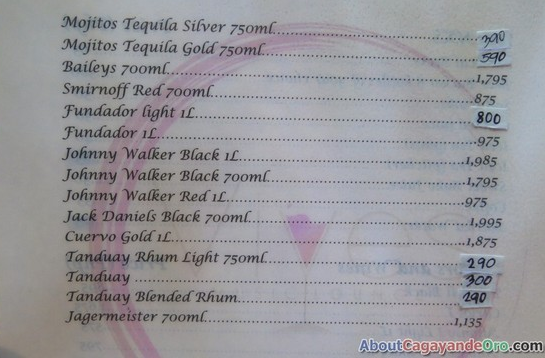 Mojitos Tequila Silver 750ml 390
Mojitos Tequila Gold 750ml 590
Baileys 700ml 1,795
Smirnoff Red 700ml 875
Fundador light 1L 800
Fundador 1L 975
Johnny Walker Black 1L 1,985
Johnny Walker Black 700ml 1,795
Johnny Walker Red 1L 975
Jack Daniels Black 700ml 1,995
Cuervo Gold 1L 1,875
Tanduay Rhum Light 750ml 290
Tanduay 300
Tanduay Blended Rhum 290
Jagermeister 700ml 1,135
AboutCagayandeOro.com